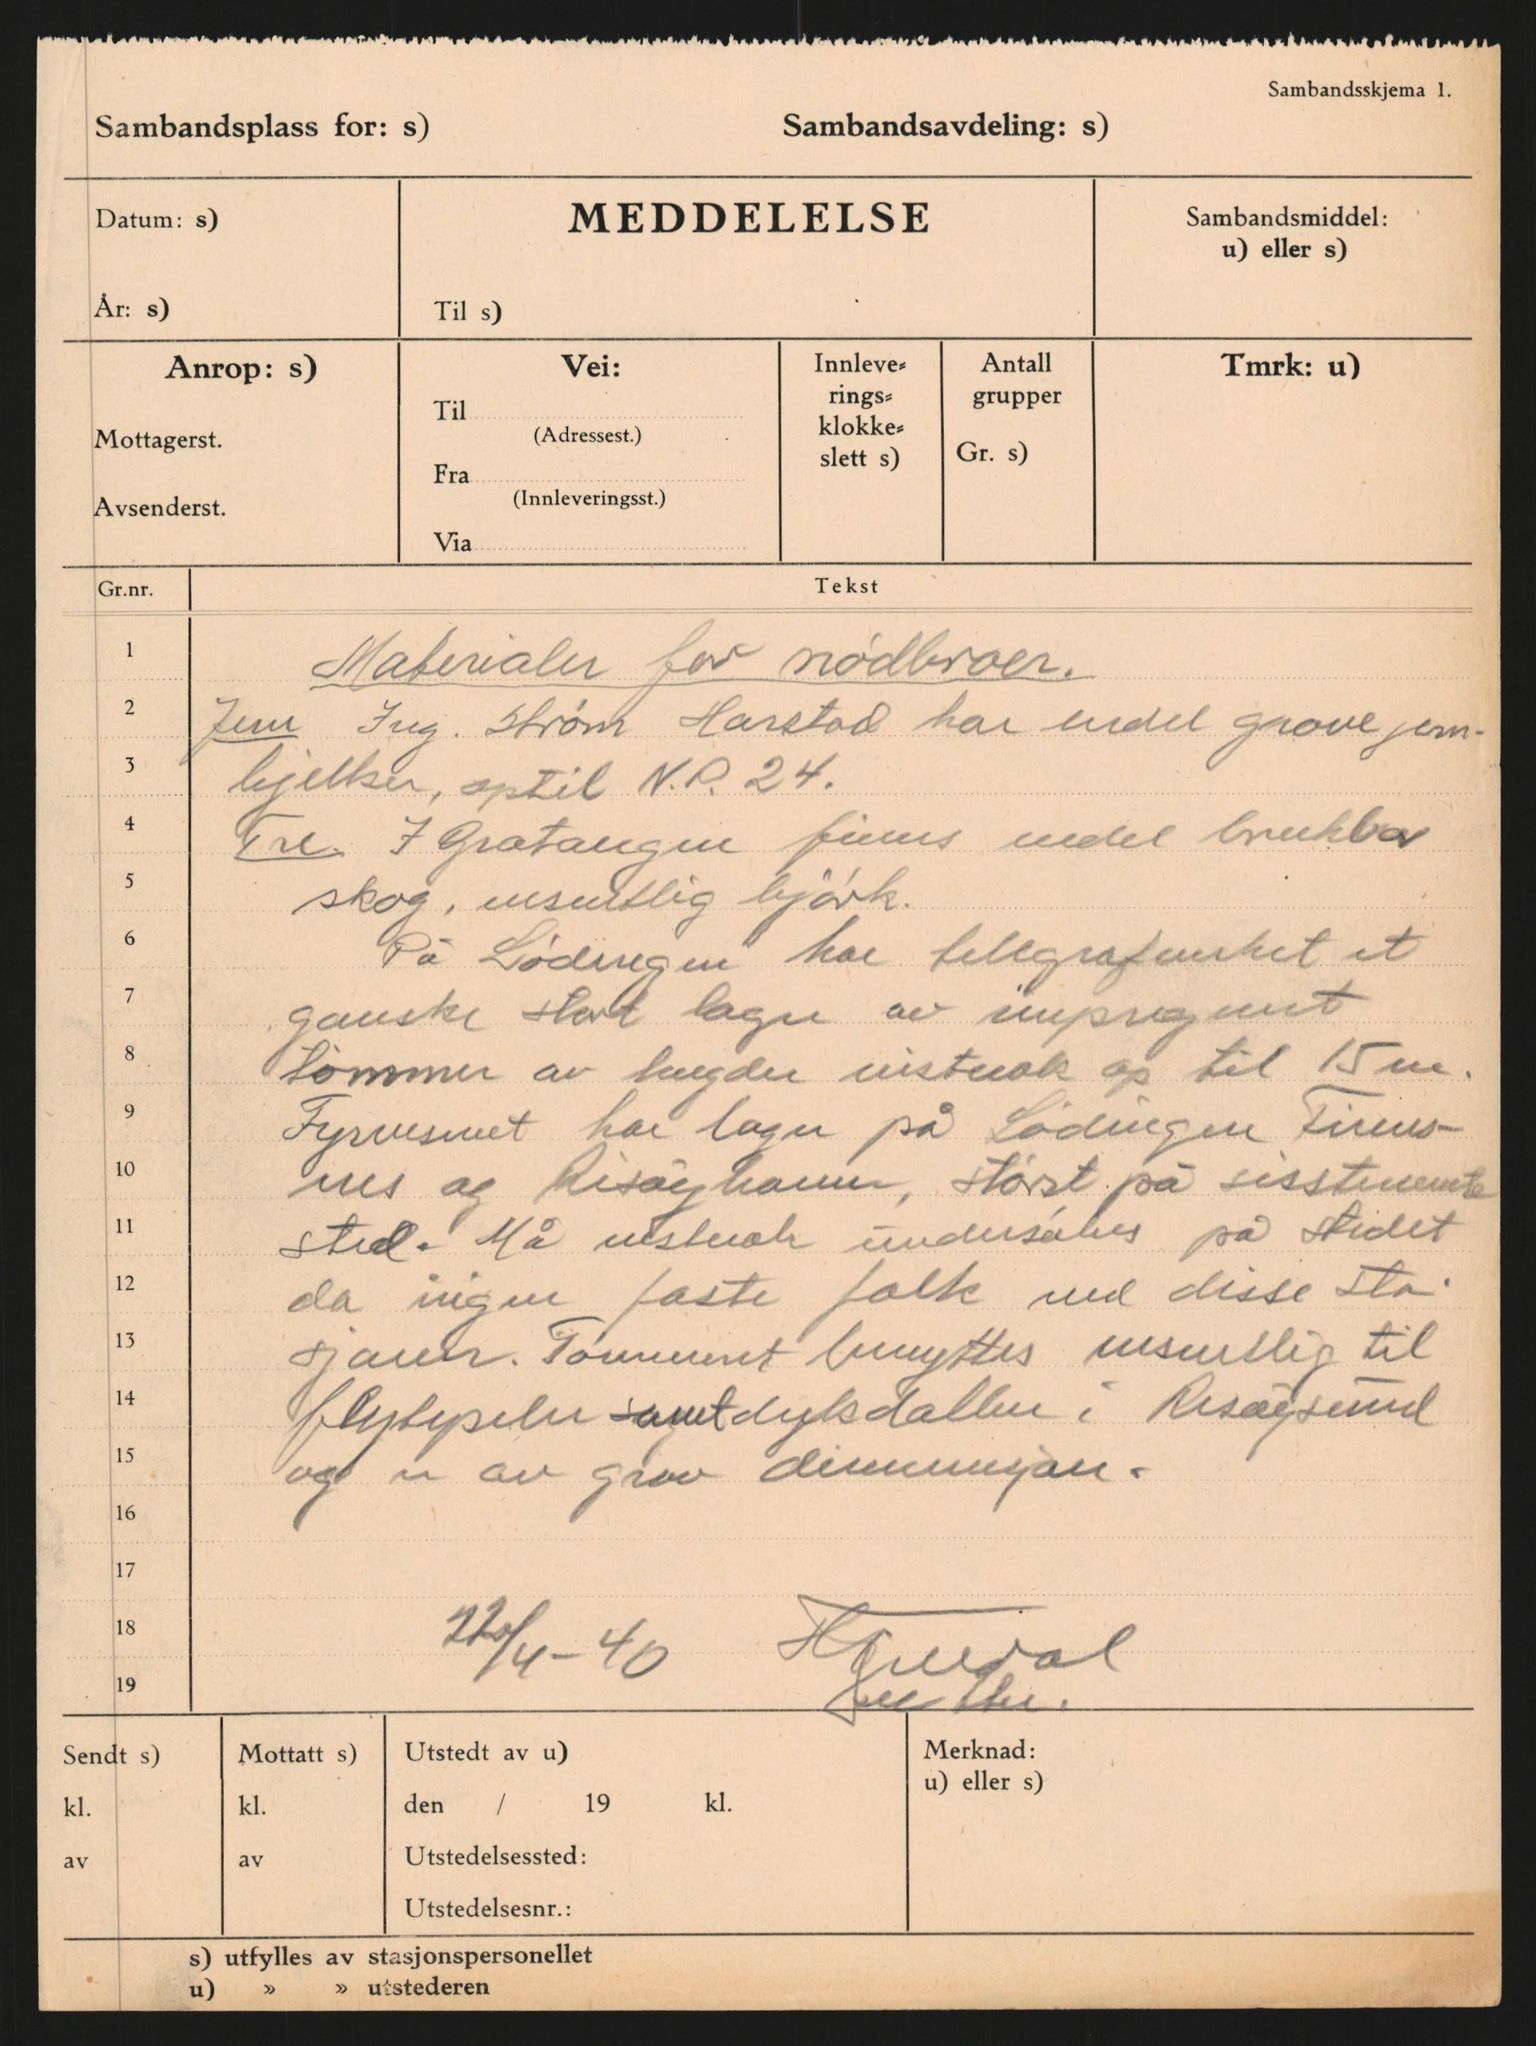 Sambandsskjema 1.
Sambandsplass for: s) Sambandsavdeling: s)
Datum: s) MEDDELELSE Sambandsmiddel:
u) eller s)
År: s) Til s)
Anrop: s) Vei: Innleve= Antall Tmrk: u)
rings= grupper
Til klokke=
Mottagerst. (Adressest.) slett s) Gr. s)
Fra
Avsenderst. (Innleveringsst.)
Via
Gr.nr. Tekst
1 Materialer for nödbroer.
2 Jern Ing. Ström Harstad har endel grove jern-
3 bjelker, optil N.P. 24.
4 Tre. I Gratangen finnes endel brukbar
5 skog, vesentlig björk.
6 På Lödingen har telegrafverket et
7 ganske stort lager av impregnert
8 tömmer av lengder visstnok op til 15 m.
9 Fyrvesenet har lager på Lödingen Finns-
10 nes og Risöyhamn, störst på sisstnevnte
11 sted. Må visstnok undersökes på stedet
12 da ingen faste folk ved disse sta-
13 sjoner. Tömmeret benyttes vesentlig til
14 flytepeler samt dykdalber i Risöysund
15 og er av grov dimensjon.
16
17
18 22/4-40
19
Sendt s) Mottatt s) Utstedt av u) Merknad:
u) eller s)
kl. kl. den / 19 kl.
av av Utstedelsessted:
Utstedelsesnr.:
s) utfylles av stasjonspersonellet
u) » » utstederen